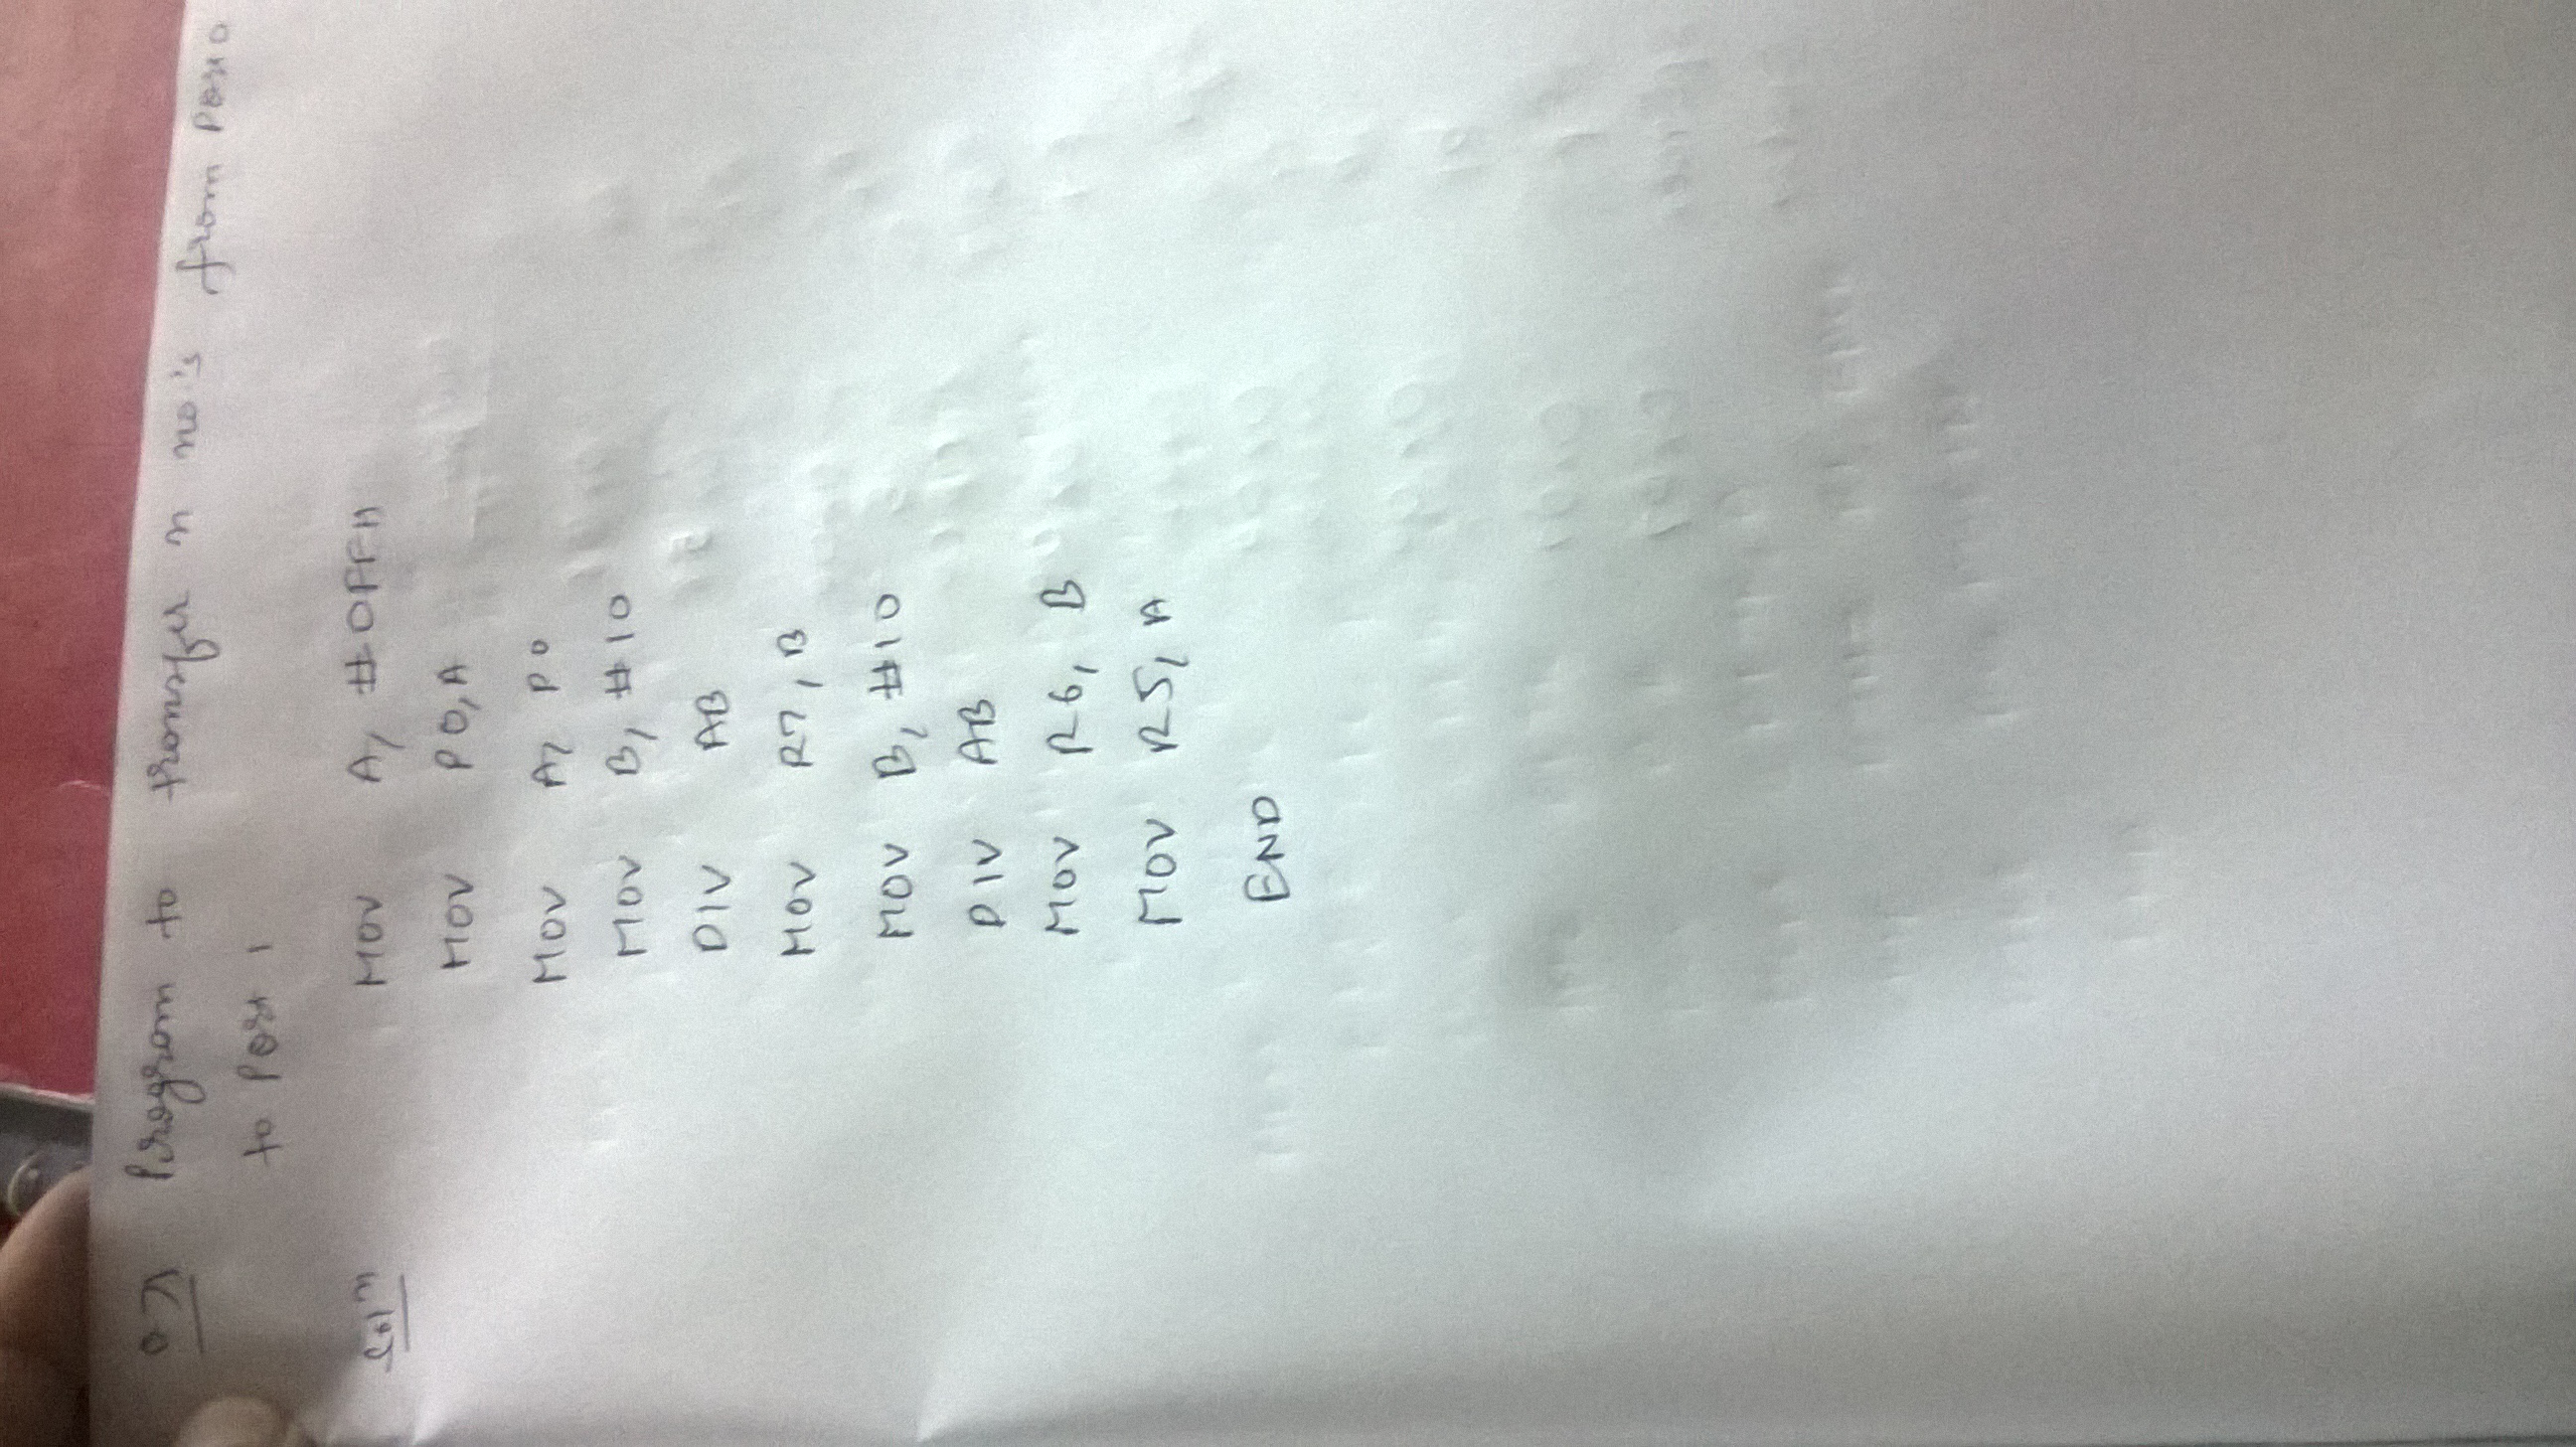 Q7) Program to transfer n no's from Port 0
to Port 1
Solⁿ MOV A, #0FFH
MOV P0, A
MOV A, P0
MOV B, #10
DIV AB
MOV R7, B
MOV B, #10
DIV AB
MOV R6, B
MOV R5, A
END